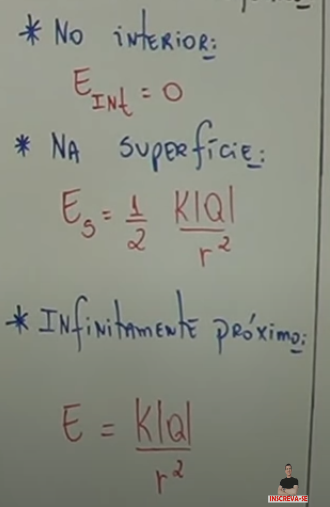 * NO INTERIOR:
E INt = 0
* NA SUPERFÍCIE:
E s = 1/2 K|Q|/r²
* INFINITAMENTE PRÓXIMO:
E = K|Q|/r²
INSCREVA-SE